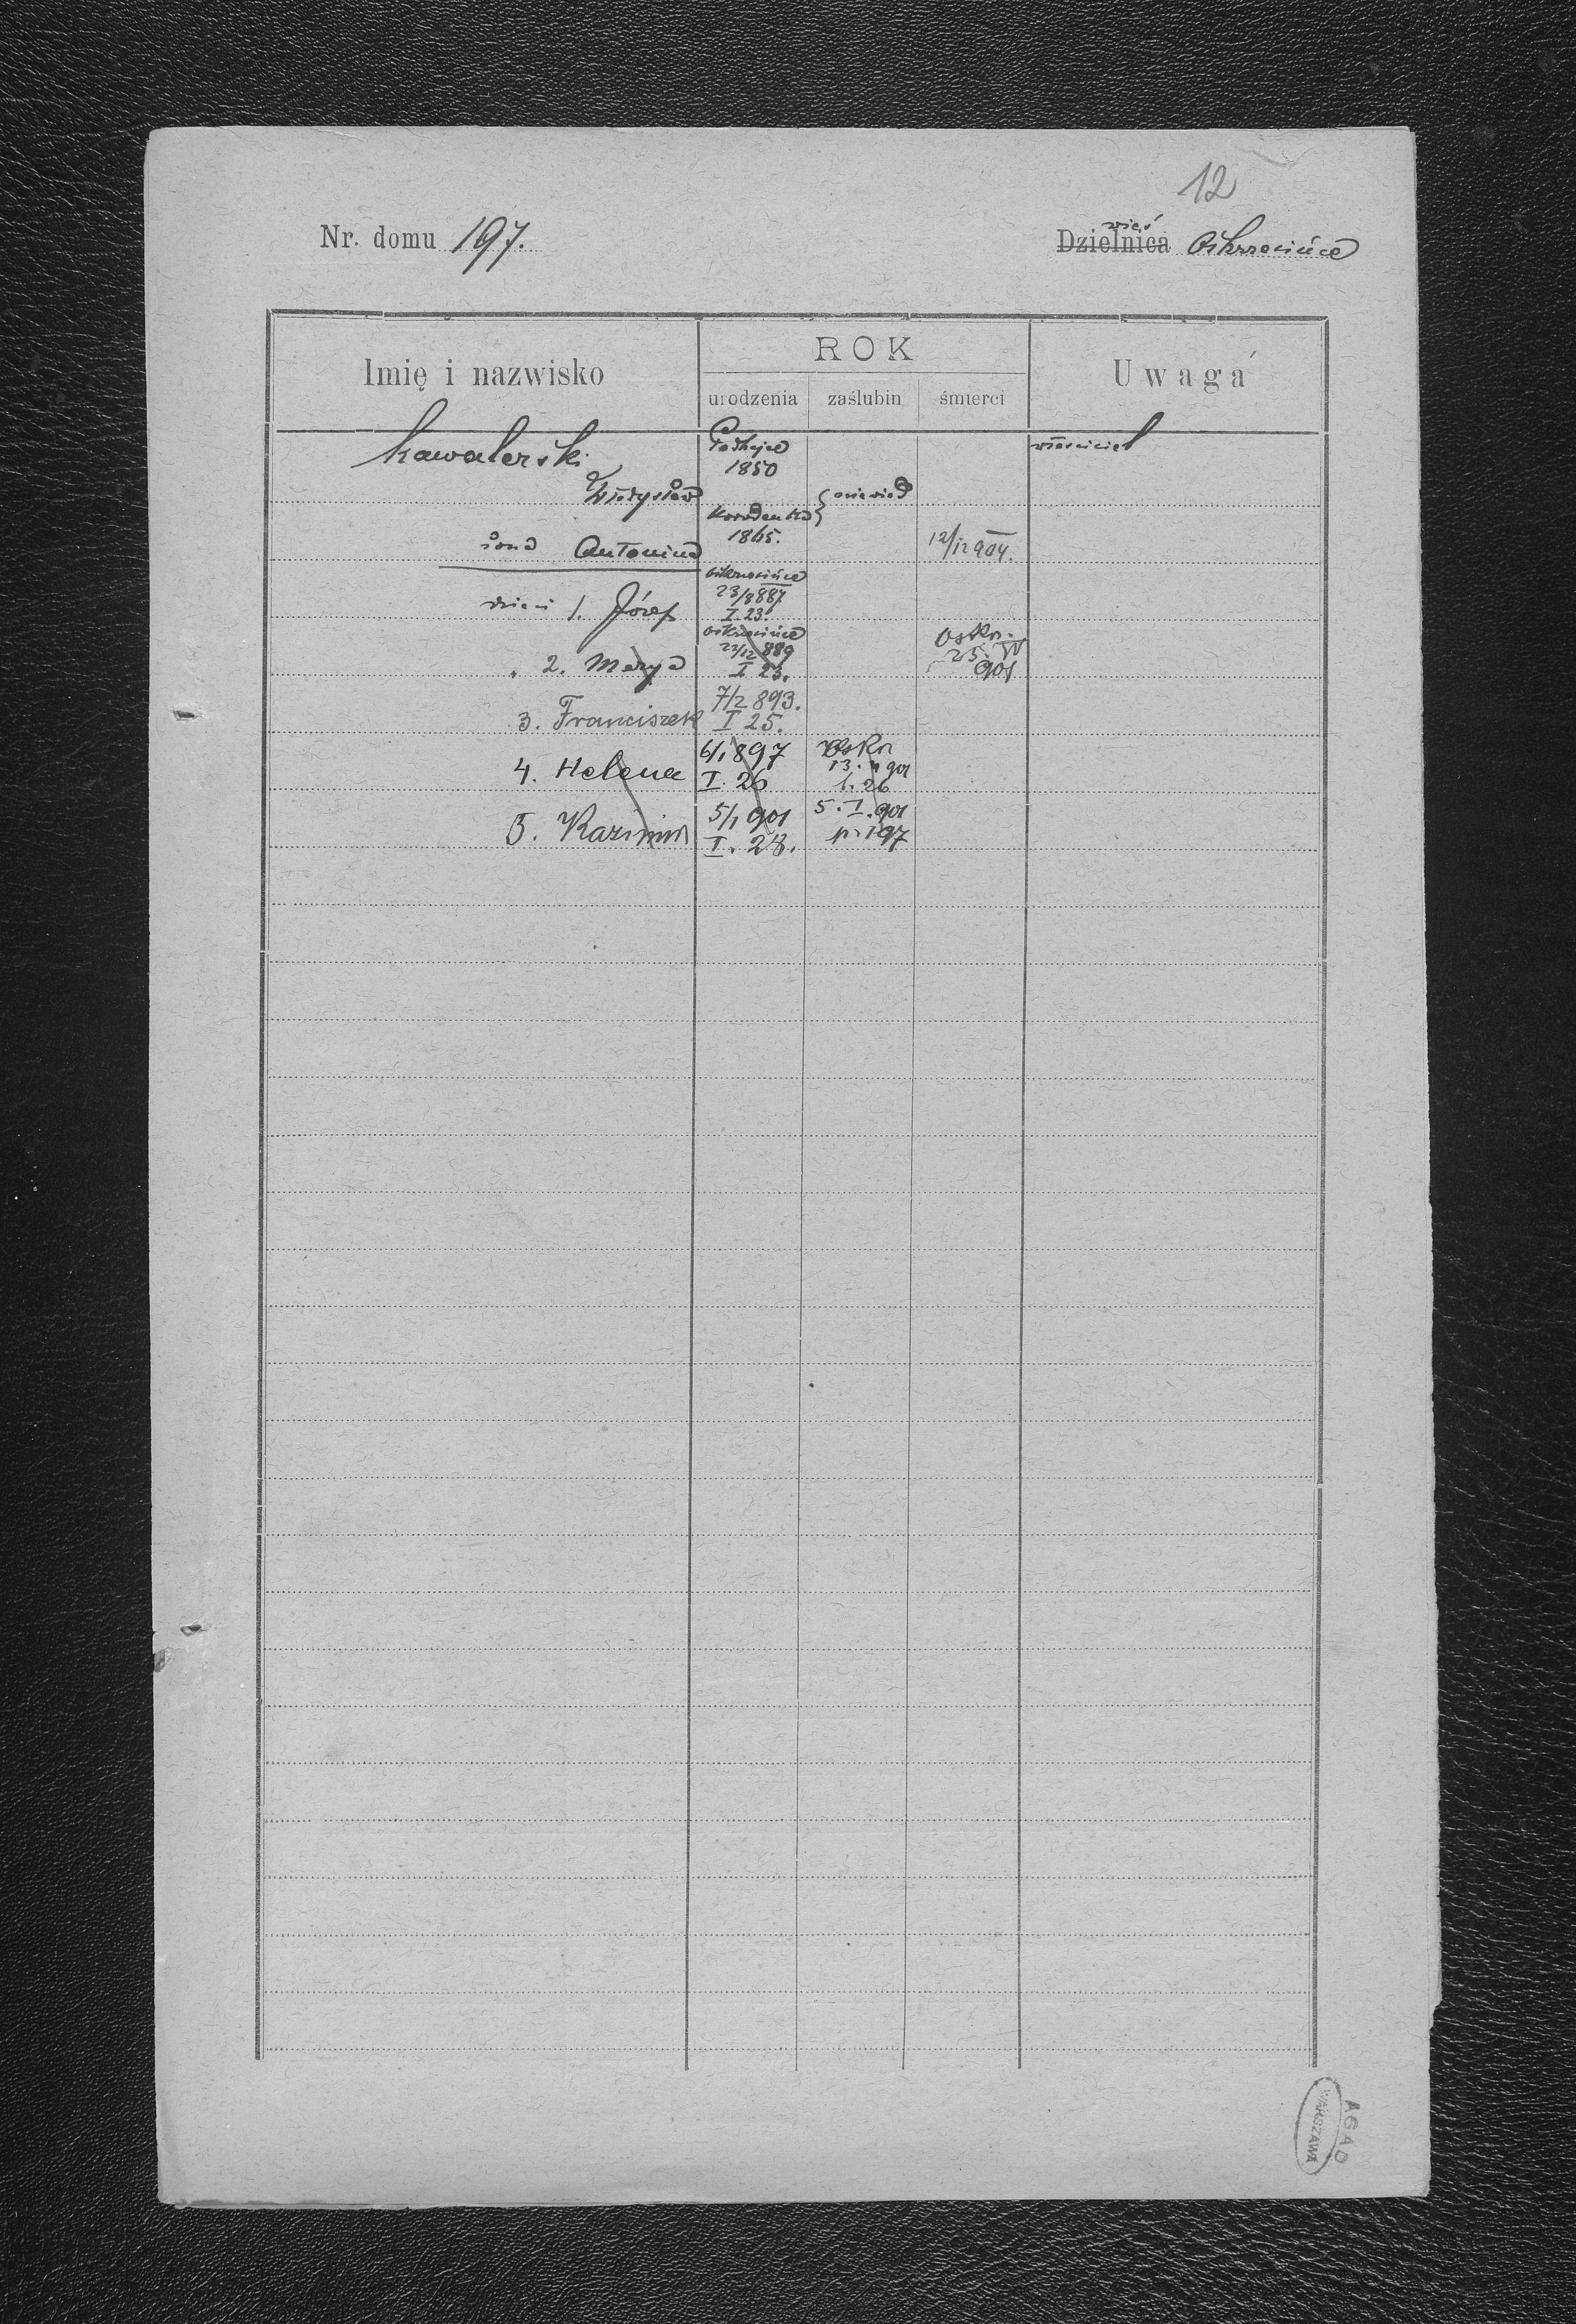 12
Nr. domu 197.
wieś
Dzielnica Oskrzesińce
Imię i nazwisko
ROK
Uwaga
urodzenia zaślubin śmierci
Kawalerski
Podhajce
1850
właściciel
Władysław
Horodenka
1865.
żona Antonina
12/12 904.
Oskrzesińce
23/8 887
I. 23.
dzieci 1. Józef
Oskrzesińce
23/12 889
I 23.
Oskrz.
25. IV
901
" 2. Marya
7/2 893.
3. Franciszek I 25.
6/1 897
Oskrz
13. II 901
4. Helena I. 26 1. 26
5/1 901 5. I. 901
5. Kazimir I. 28. p. 197
AGAD
WARSZAWA